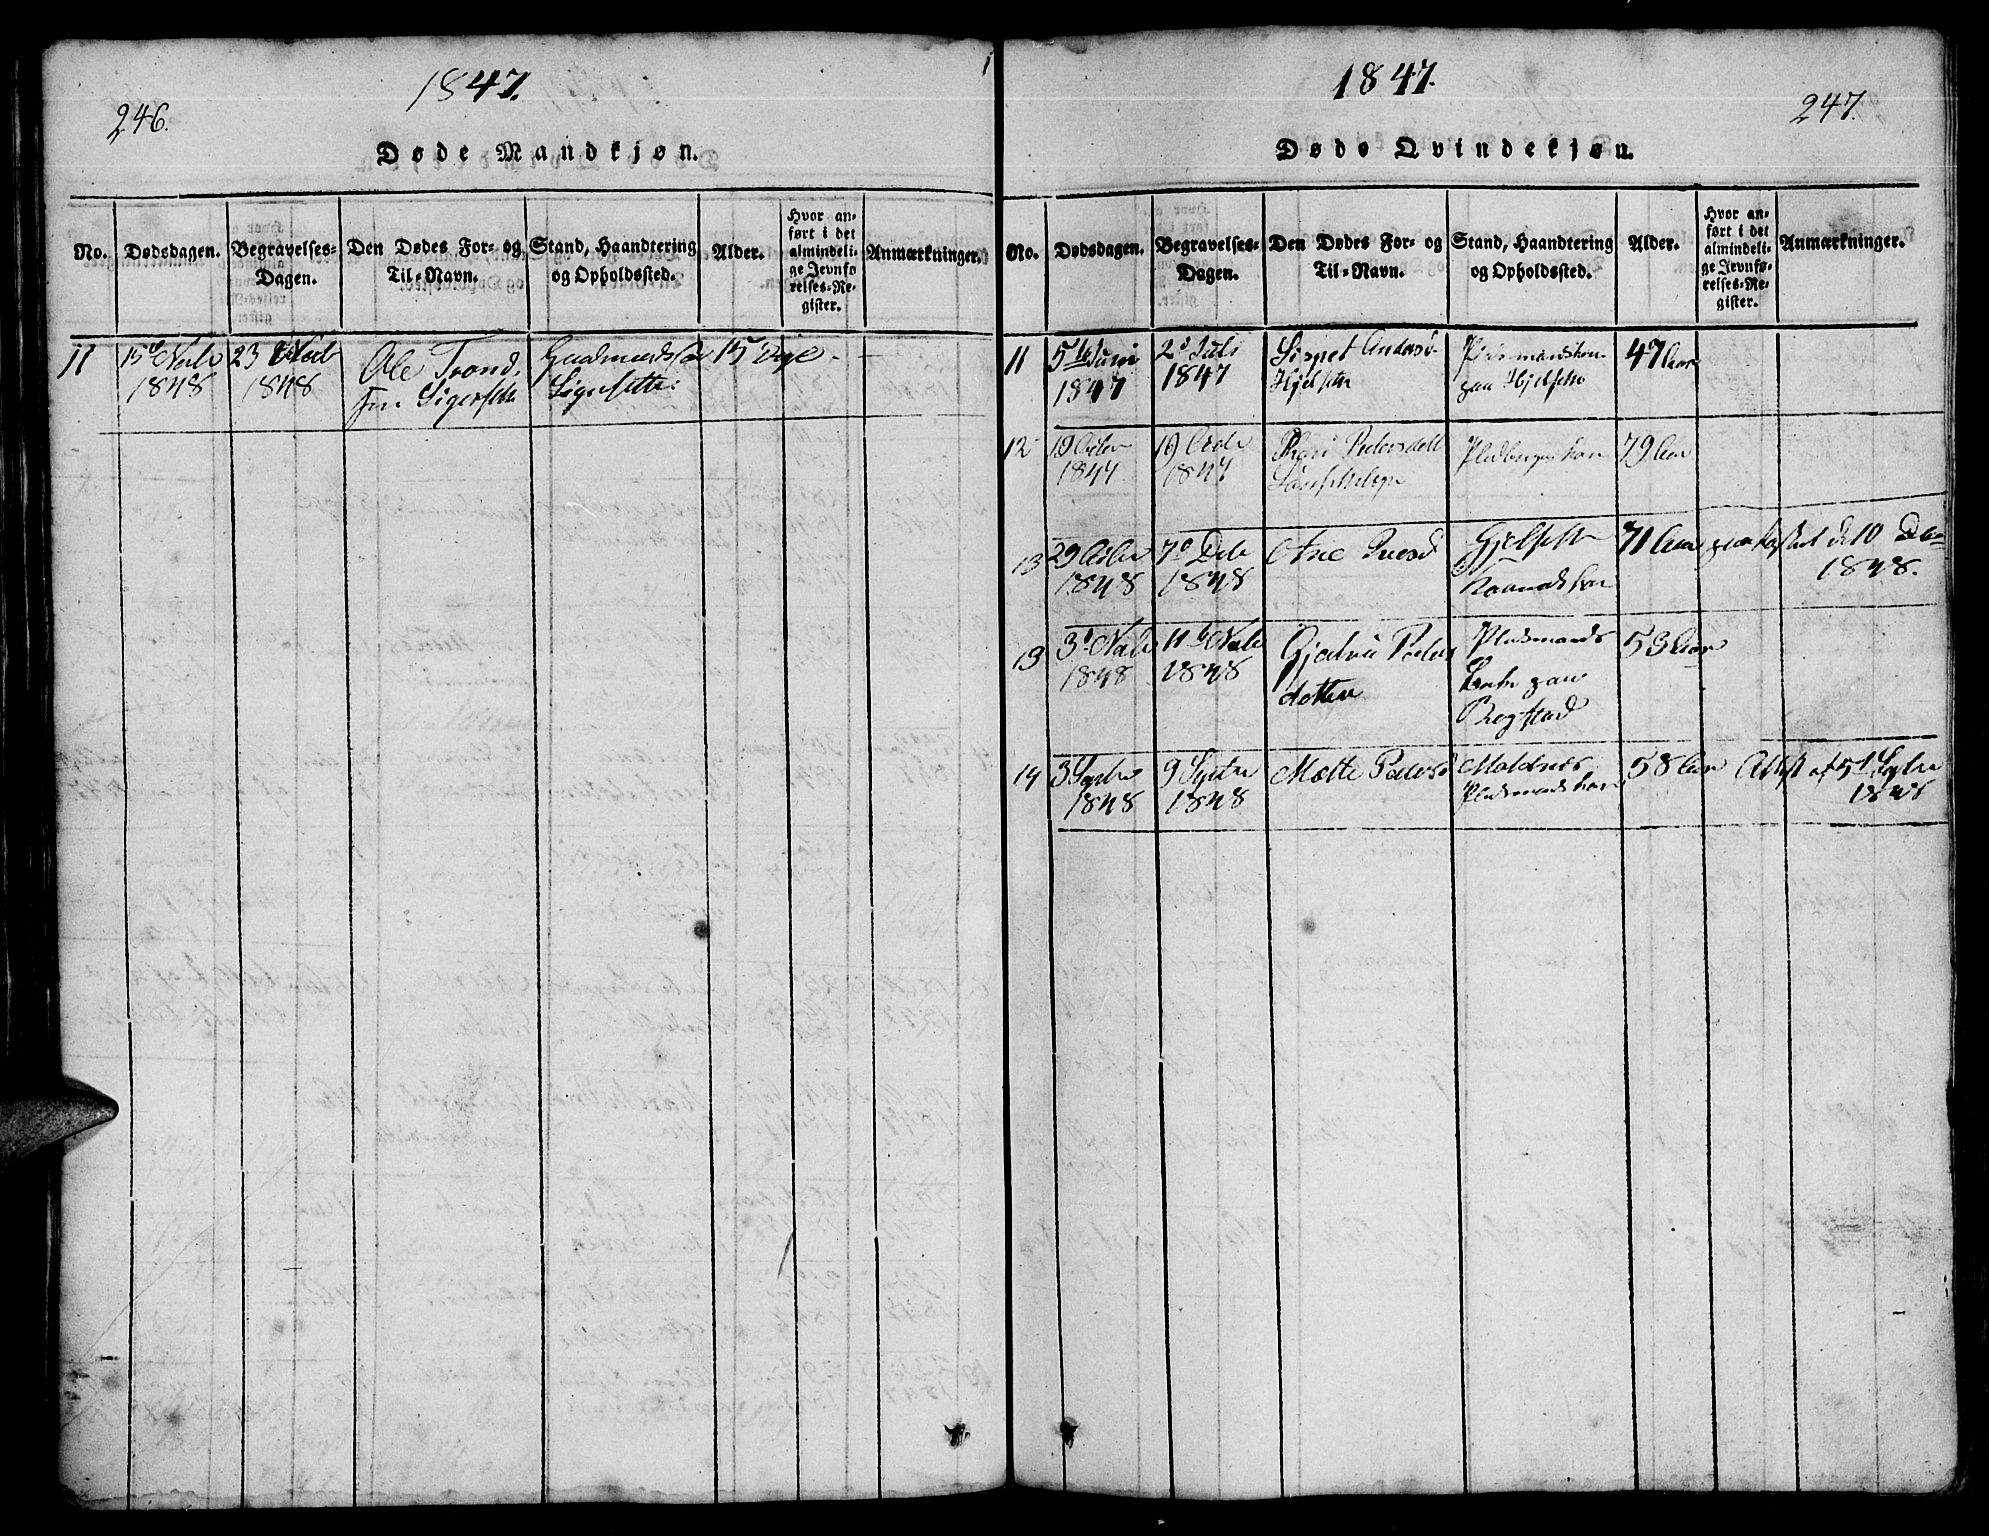 246.
1847.
Døde Mandkjøn.
No.
Dødsdagen.
Begravelses-
Dagen.
Den Dødes For- og
Til-Navn.
Stand, Haandtering
og Opholdssted.
Alder.
Hvor an-
ført i det
almindeli-
ge Jevnfø-
relses-Re-
gister.
Anmærkninger.
11
15de Novbr
1848
23 Novb
1848
Ole Trond
Sigerseth
Gaardmands
15 Dage
1847.
247.
Døde Qvindekjøn.
No.
Dødsdagen.
Begravelses-
Dagen.
Den Dødes For- og
Til-Navn.
Stand, Haandtering
og Opholdssted.
Alder.
Hvor an-
ført i det
almindeli-
ge Jevnfø-
relses-Re-
gister.
Anmærkninger.
11
5te Juni
1847
2d Juli
1847
Andersd
Hjelset
paa Hjelset
47 Aar
12
19
1847
19
1847
Pedersdatt
79 Aar
13
29
1848
7d Dcbr
1848
Ane
Gjelset
71 Aar
10 Dec
1848.
13
3d Novbr
1848
11te Novbr
1848
Peders
datter
Pladsmands
Enke paa
Bogstad
53 Aar
14
3 Septbr
1848
9 Septbr
1848
Mette Pedersd
Moldnes
Pladsmandskone
58 Aar
Attest af 5te Septbr
1848